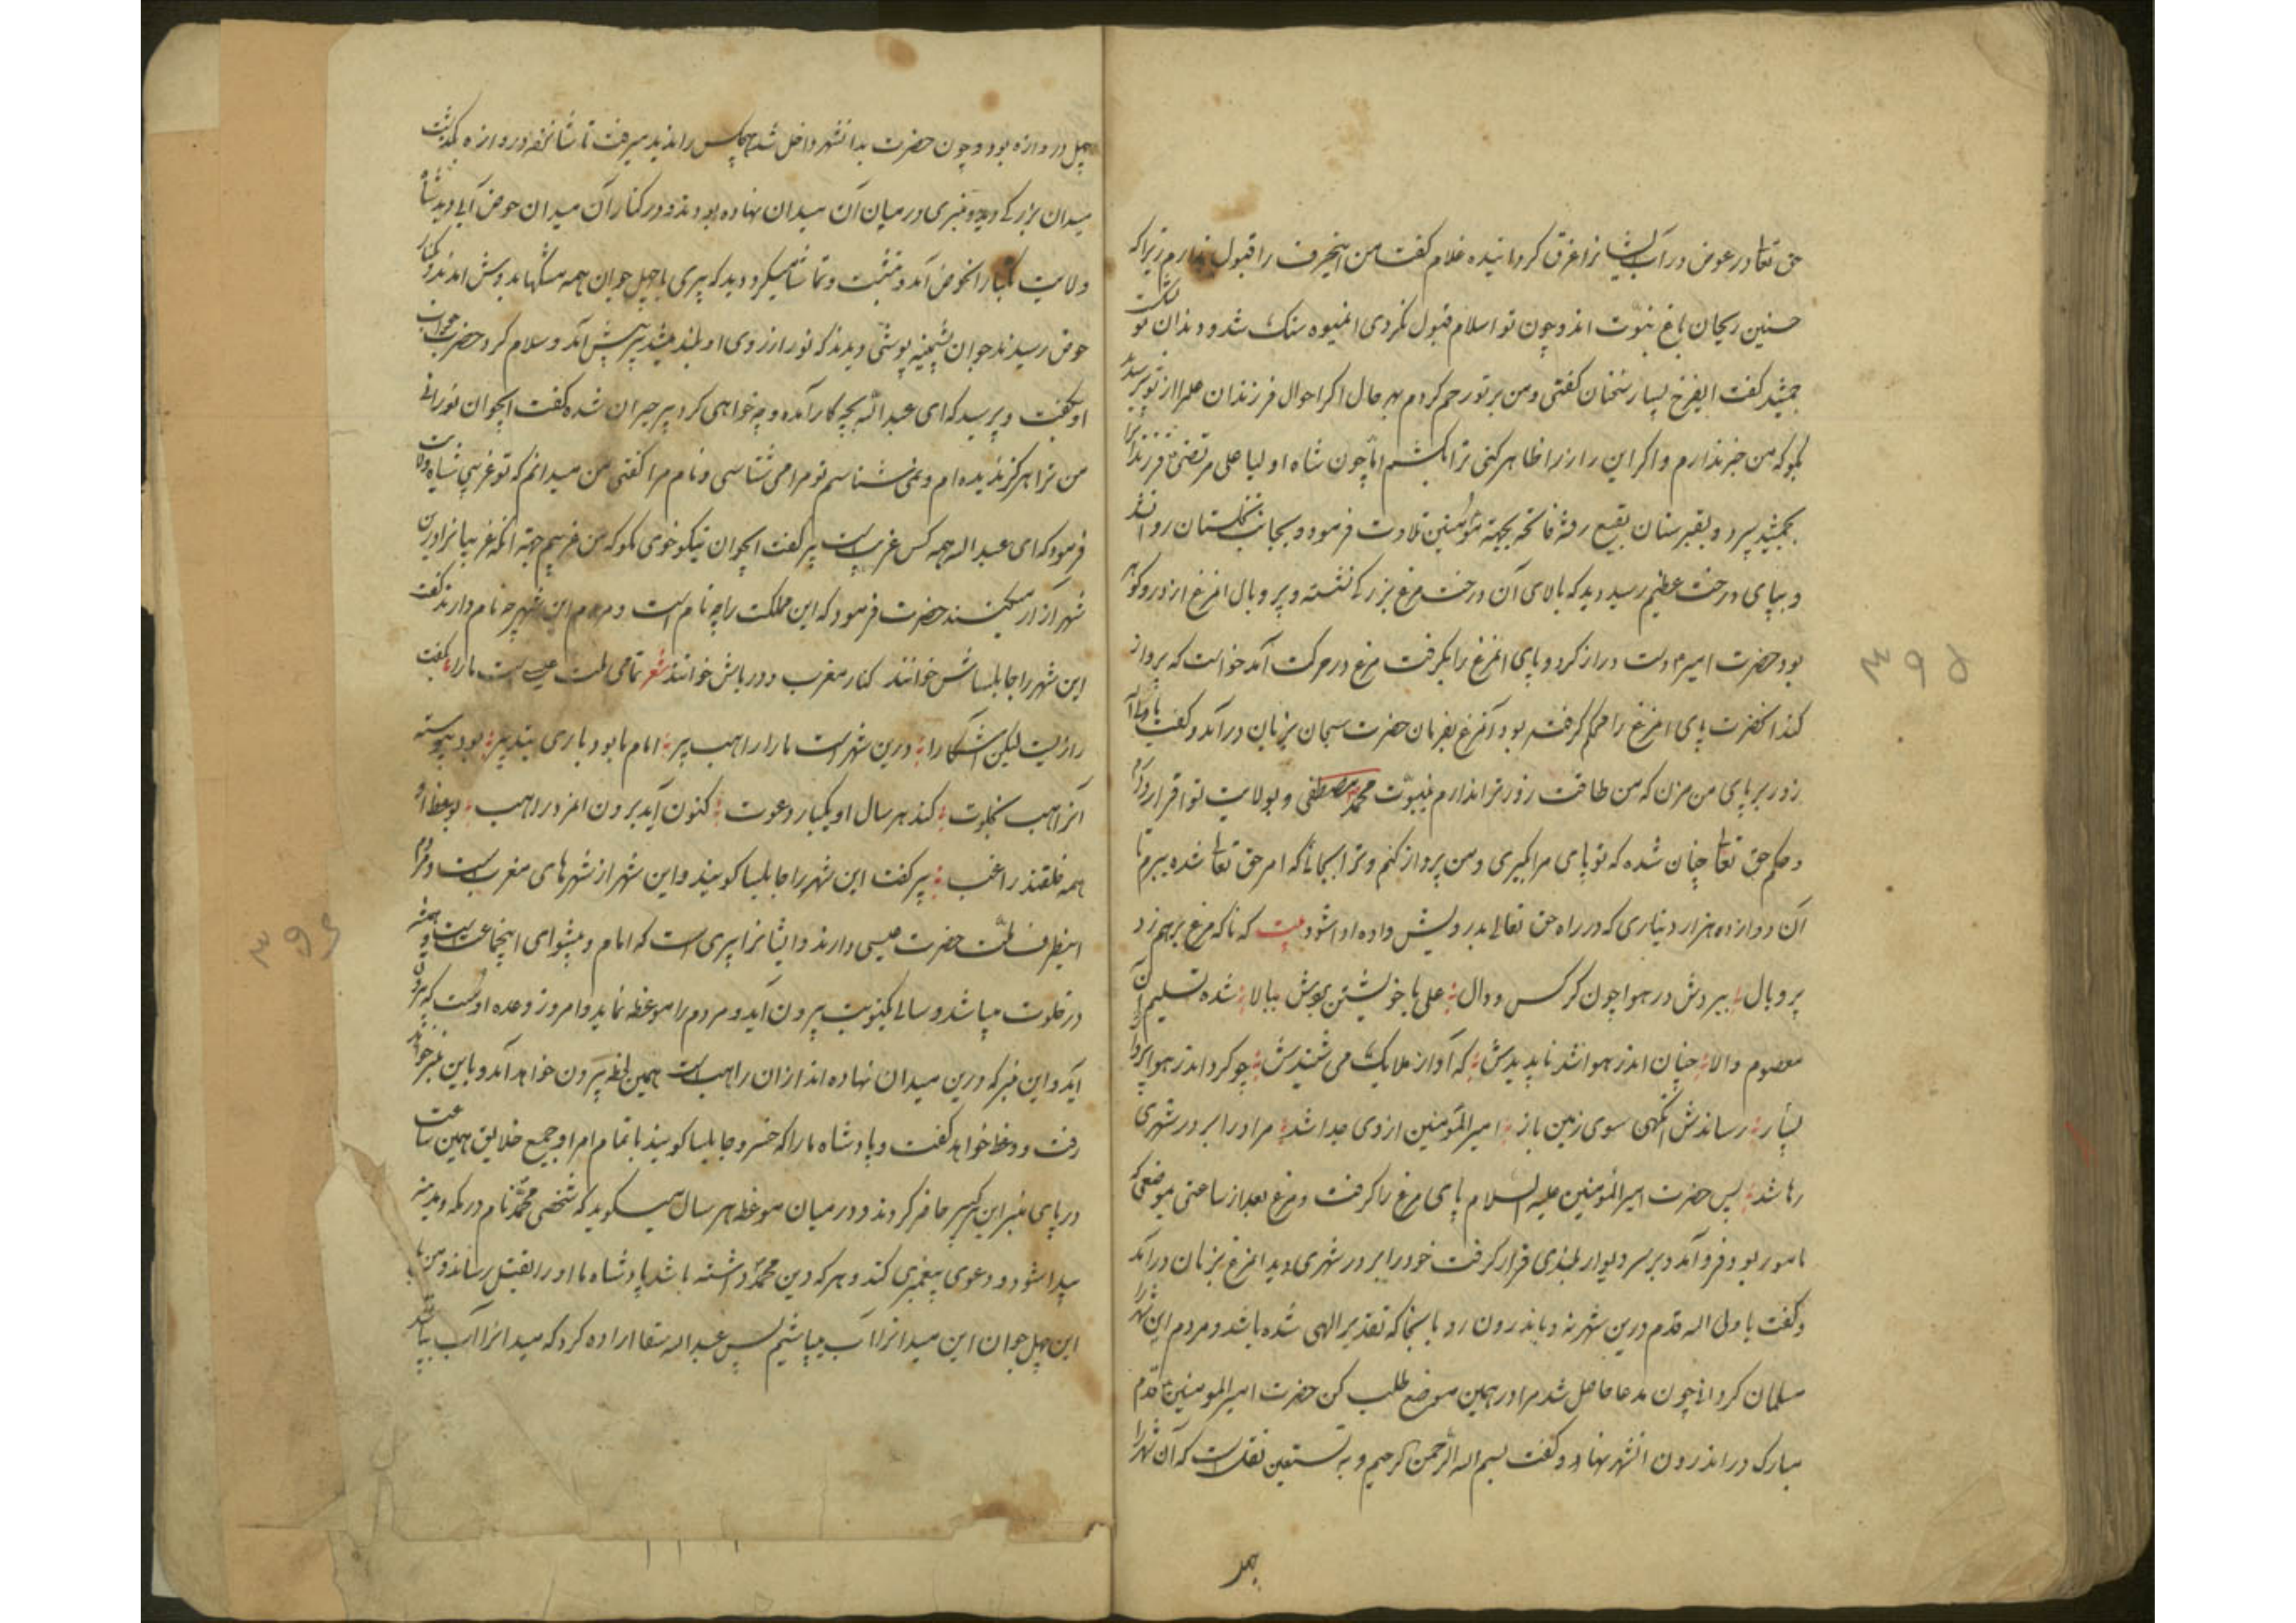 حق تعا در عوض در آب ایشانرا غرق کردانیده غلام کفت من اینحرف را قبول ندارم زیرا که
حسنین ریحان باغ نبوّت اند و چون تو اسلام قبول نکردی این میوه سنک شد و دندان تو شکست
جمشید کفت ایفرخ بسیار سخنان کفتی و من بر تو رحم کردم بهر حال اکر احوال فرزندان علی را از تو پرسند
بکو که من خبر ندارم و اکر این راز را ظاهر کنی ترا بکشم امّا چون شاه اولیا علی مرتضی فرزندانرا
بجمشید سپرد و بقبرستان بقیع رفته فاتحه بجهة مؤمنین تلاوت فرمود و بجانب نخلستان روانه شد
و بپای درخت عظیم رسید دید که بالای آن درخت مرغ بزرکی نشسته و پر و بال آنمرغ از در و کوهر
بود حضرت امیر دست دراز کرد و پای آنمرغ را بکرفت مرغ در حرکت آمد خواست که پرواز
کند آنحضرت پای آنمرغ را محکم کرفته بود آنمرغ بفرمان حضرت سبحان بزبان درآمد و کفت یا ولی اله
زور بر پای من مزن که من طاقت زور ترا ندارم بنبوّت محمّد مصطفی و بولایت تو اقرار دارم
و حکم حق تعا چنان شده که تو پای مرا بکیری و من پرواز کنم و ترا بجائی که امر حق تعا شده ببرم تا
آن دوازده هزار دیناری که در راه حق تعالی بدرویش داده ادا شود بیت که ناکه مرغ برهم زد
پر و بال ببردش در هوا چون کرکس و دال علی با خویشتن بردش ببالا شده تسلیم آن
معصوم والا چنان اندر هوا شد ناپدیدش که آواز ملایک می شنیدش چو کرد اندر هوا پرواز
بسیار رساندش آنکهی سوی زمین باز امیرالمؤمنین از وی جدا شد مر او را بر در شهری
رها شد پس حضرت امیرالمؤمنین علیه السلام پای مرغ را کرفت و مرغ بعد از ساعتی بموضعی که
مامور بود فرو آمد و بر سر دیوار بلندی قرار کرفت خود را بر در شهری دید آنمرغ بزبان درآمد
و کفت یا ولی اله قدم درین شهر نه و باندرون رو تا بآنجا که تقدیر الهی شده باشد و مردم این شهر را
مسلمان کردانی چون مدعا حاصل شد مرا در همین موضع طلب کن حضرت امیرالمومنین قدم
مبارک در اندرون آنشهر نهاد و کفت بسم اله الرّحمن الرحیم و به نستعین نقلست که آن شهر را
چهل
چهل دروازه بود و چون حضرت بدانشهر داخل شد هیچکس را ندید میرفت تا شانزده دروازه بکذشت
میدان بزرکی دید و منبری در میان آن میدان نهاده بودند و در کنار آن میدان حوض آبی دید شاه
ولایت بکنار آنحوض آمد و بنشست و تماشا میکرد دید که پیری با چهل جوان همه مشکها بدوش آمدند و بکنار
حوض رسیدند جوان پشمینه پوشی دیدند که نور از روی او بلند میشد پیر پیش آمد و سلام کرد حضرت جواب
او بکفت و پرسید که ای عبداله بچه کار آمده و چه خواهی کرد پیر حیران شده کفت ایجوان نورانی
من ترا هرکز ندیده ام و نمی شناسم تو مرا می شناسی و نام مرا کفتی من میدانم که تو غریبی شاه ولایت
فرمود که ای عبداله همه کس غریبست پیر کفت ایجوان نیکو خوی بکو که من غریبم جهة آنکه غریبانرا درین
شهر آزار میکنند حضرت فرمود که این مملکت را چه نام است و مردم این شهر چه نام دارند کفت
این شهر را جابلسا ش خوانند کنار مغرب و دریاش خوانند شعر تمامی ملت عیسی است ما را بکفت
رازیست لیکن آشکارا درین شهر است ما را راهب پیر امام ما بود باری بتدبیر بود پیوسته
آنراهب بخلوت کند هر سال او یکبار دعوت کنون آید برون امروز راهب بوعظ او
همه خلقند راغب پیر کفت این شهر را جابلسا کویند و این شهر از شهرهای مغربست و مردم
اینطرف ملّت حضرت عیسی دارند و ایشانرا پیری است که امام و پیشوای اینجماعت است و همیشه
در خلوت میباشد و سالی یکنوبت بیرون آید و مردم را موعظه نماید و امروز وعده اوست که بیرون
آید و این منبر که درین میدان نهاده اند از آن راهب است همین لحظه بیرون خواهد آمد و باین منبر خواهد
رفت و وعظ خواهد کفت و پادشاه ما را که خسرو جابلسا کویند با تمام امرا و جمیع خلایق همین ساعت
در پای منبر این پیر حاضر کردند و در میان موعظه هر سال میکوید که شخصی محمّد نام در مکه و مدینه
پیدا شود و دعوی پیغمبری کند و هر که دین محمّد داشته باشد پادشاه ما او را بقتل رساند و من با
این چهل جوان این میدانرا آب میپاشیم پس عبداله سقا اراده کرد که میدانرا آب بپاشد